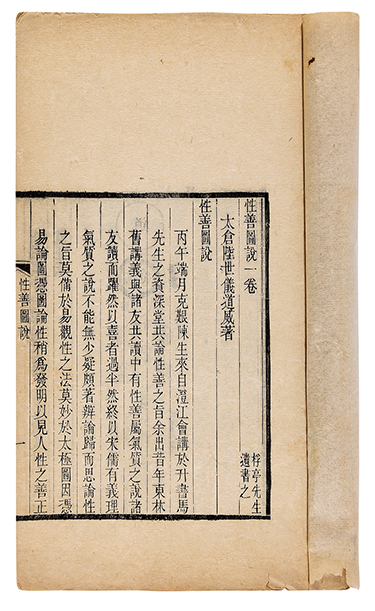 性善圖說一卷
桴亭先生
遺書之
太倉陸世儀道威著
性善圖說
丙午端月克艱陳生來自澄江會講於升書馬
先生之資深堂共論性善之旨余出昔年東林
舊講義與諸友共讀中有性善屬氣質之說諸
友讀而躍然以喜者過半然終以宋儒有義理
氣質之說不能無少疑頗著辨論歸而思論性
之旨莫備於易觀性之法莫妙於太極圖因憑
易論圖憑圖論性稍為發明以見人性之善正
性善圖說
一